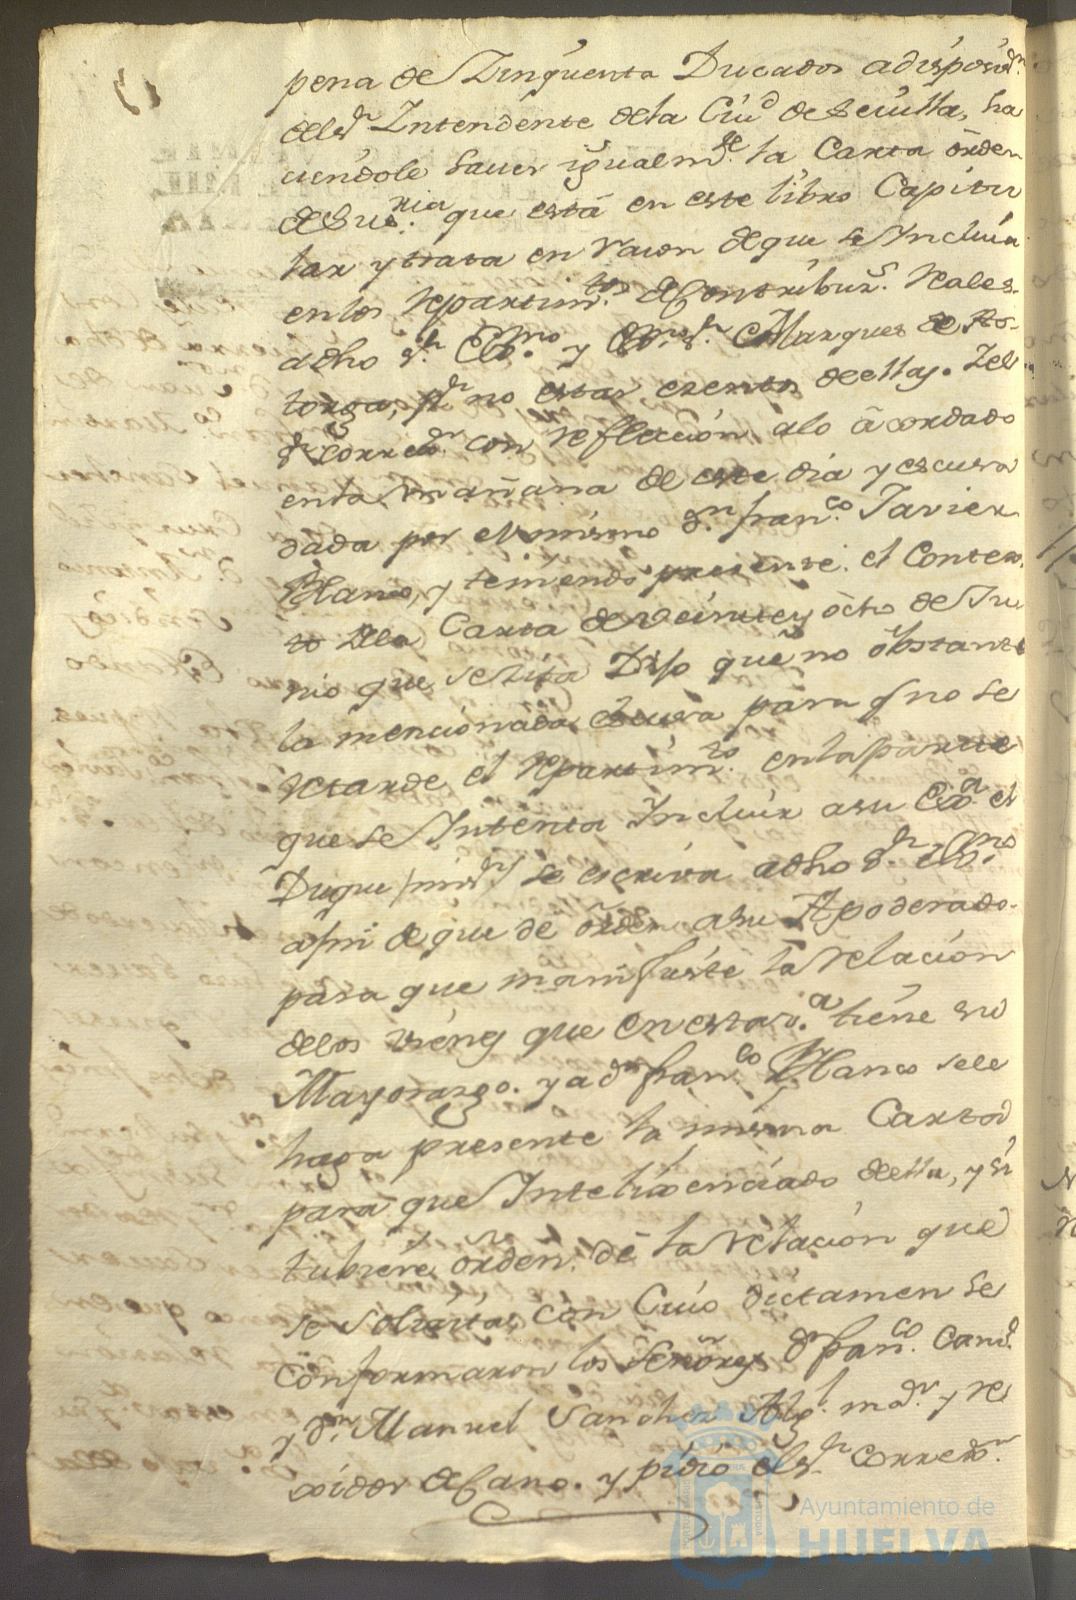 pena de Zinquenta Ducados a disposiⁿ.
del sʳ Intendente de la Ciuᵈ de Sevilla, ha
ciendole saver igualmᵗᵉ. la Carta orden
de Su Sʳⁱᵃ. que está en este libro Capitu
lar y trata en razon de que se Incluia
en los Repartimᵗᵒˢ. de Contribuzˢ. Reales.
a dho sʳ. Exᵐᵒ. y Exᵐᵒ sʳ. Marques de As-
torga, pʳ no estar exentos de ellas. I el
sʳ Corregʳ. con reflección a lo acordado
en la mañana de este dia y escusa
dada por el mismo Dⁿ. franᶜᵒ. Javier
Blanco, y teniendo presente el Contex
to de la Carta de veinte y ocho de Ju
nio que se Zita Dijo que no obstante
la mencionada escusa para q no se
retarde el Repartimᵗᵒ. en la parte
que se Intenta Incluir a su Exᵃ. el
Duque / mi sʳ / se escriva a dho sʳ. Exᵐᵒ
a fin de que dé orden a su Apoderado
para que manifieste la relacion
de los vienes que en esta vᵃ. tiene su
Mayorazgo. y a dⁿ franᶜᵒ Blanco se le
haga presente la misma Carta
para que Intelixenciado de ella, y si
tubiere orden. dé la relacion que
se solicita, con Cuio dictamen se
conformaron los Señores Dⁿ franᶜᵒ. Canᵈ.
y Dⁿ. Manuel Sanchez Algˡ. maʳ. y Re
xidor decano. y pidio el sʳ. Corregʳ.
Ayuntamiento de
HUELVA